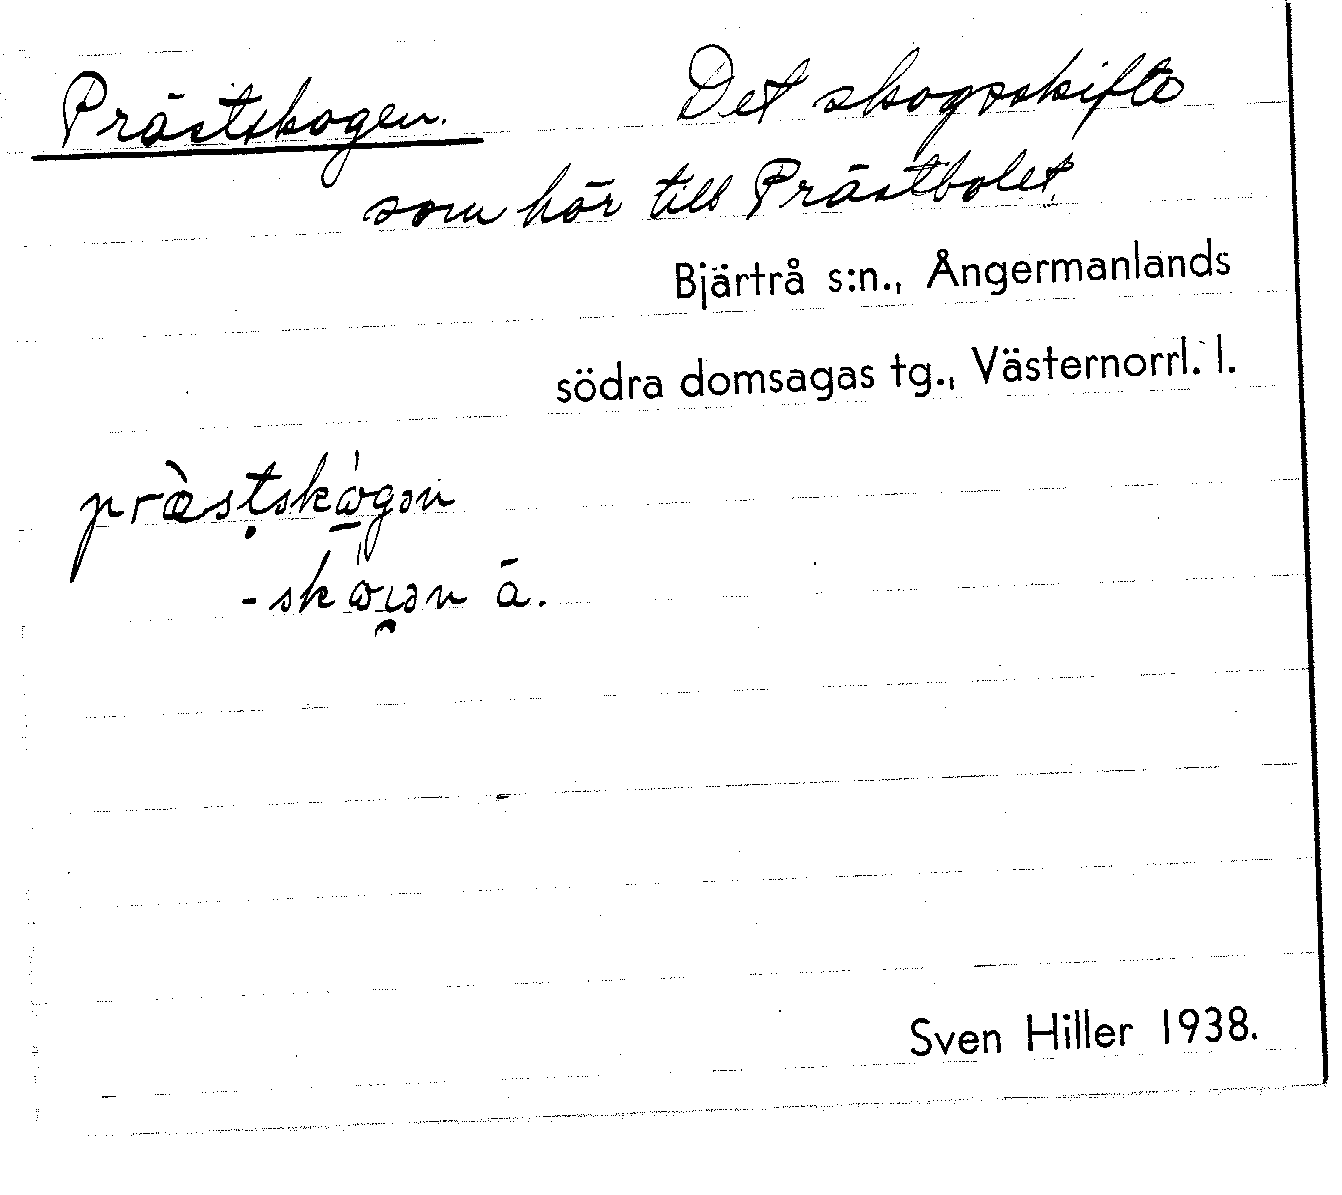 Prästskogen. Det skogsskifte
som hör till Prästbolet.
Bjärtrå s:n., Ångermanlands
södra domsagas tg., Västernorrl. l.
præ̀stskò̱gən
ā.
Sven Hiller 1938.